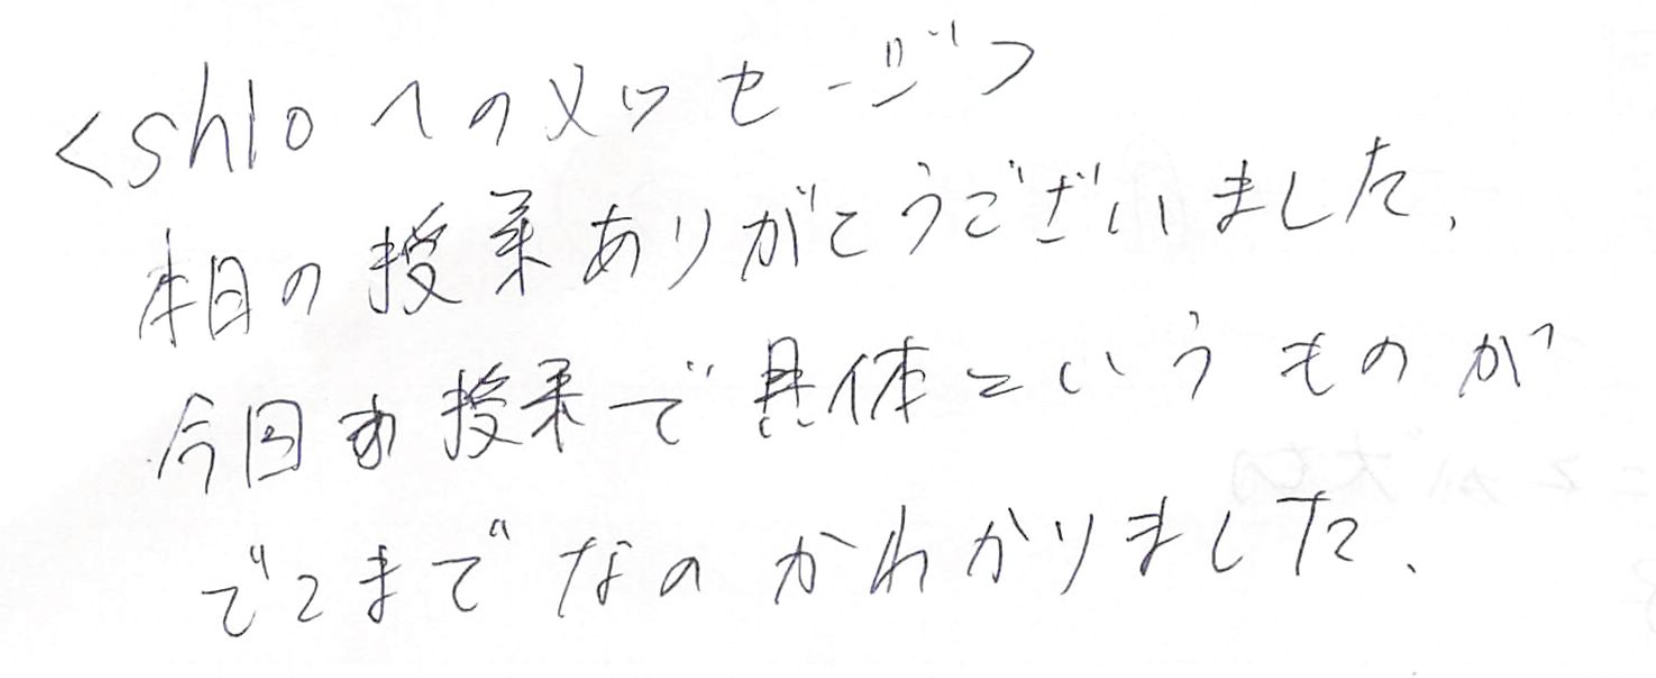 <shioへのメッセージ>
本日の授業ありがとうございました。
今回の授業で具体というものが
どこまでなのかわかりました。